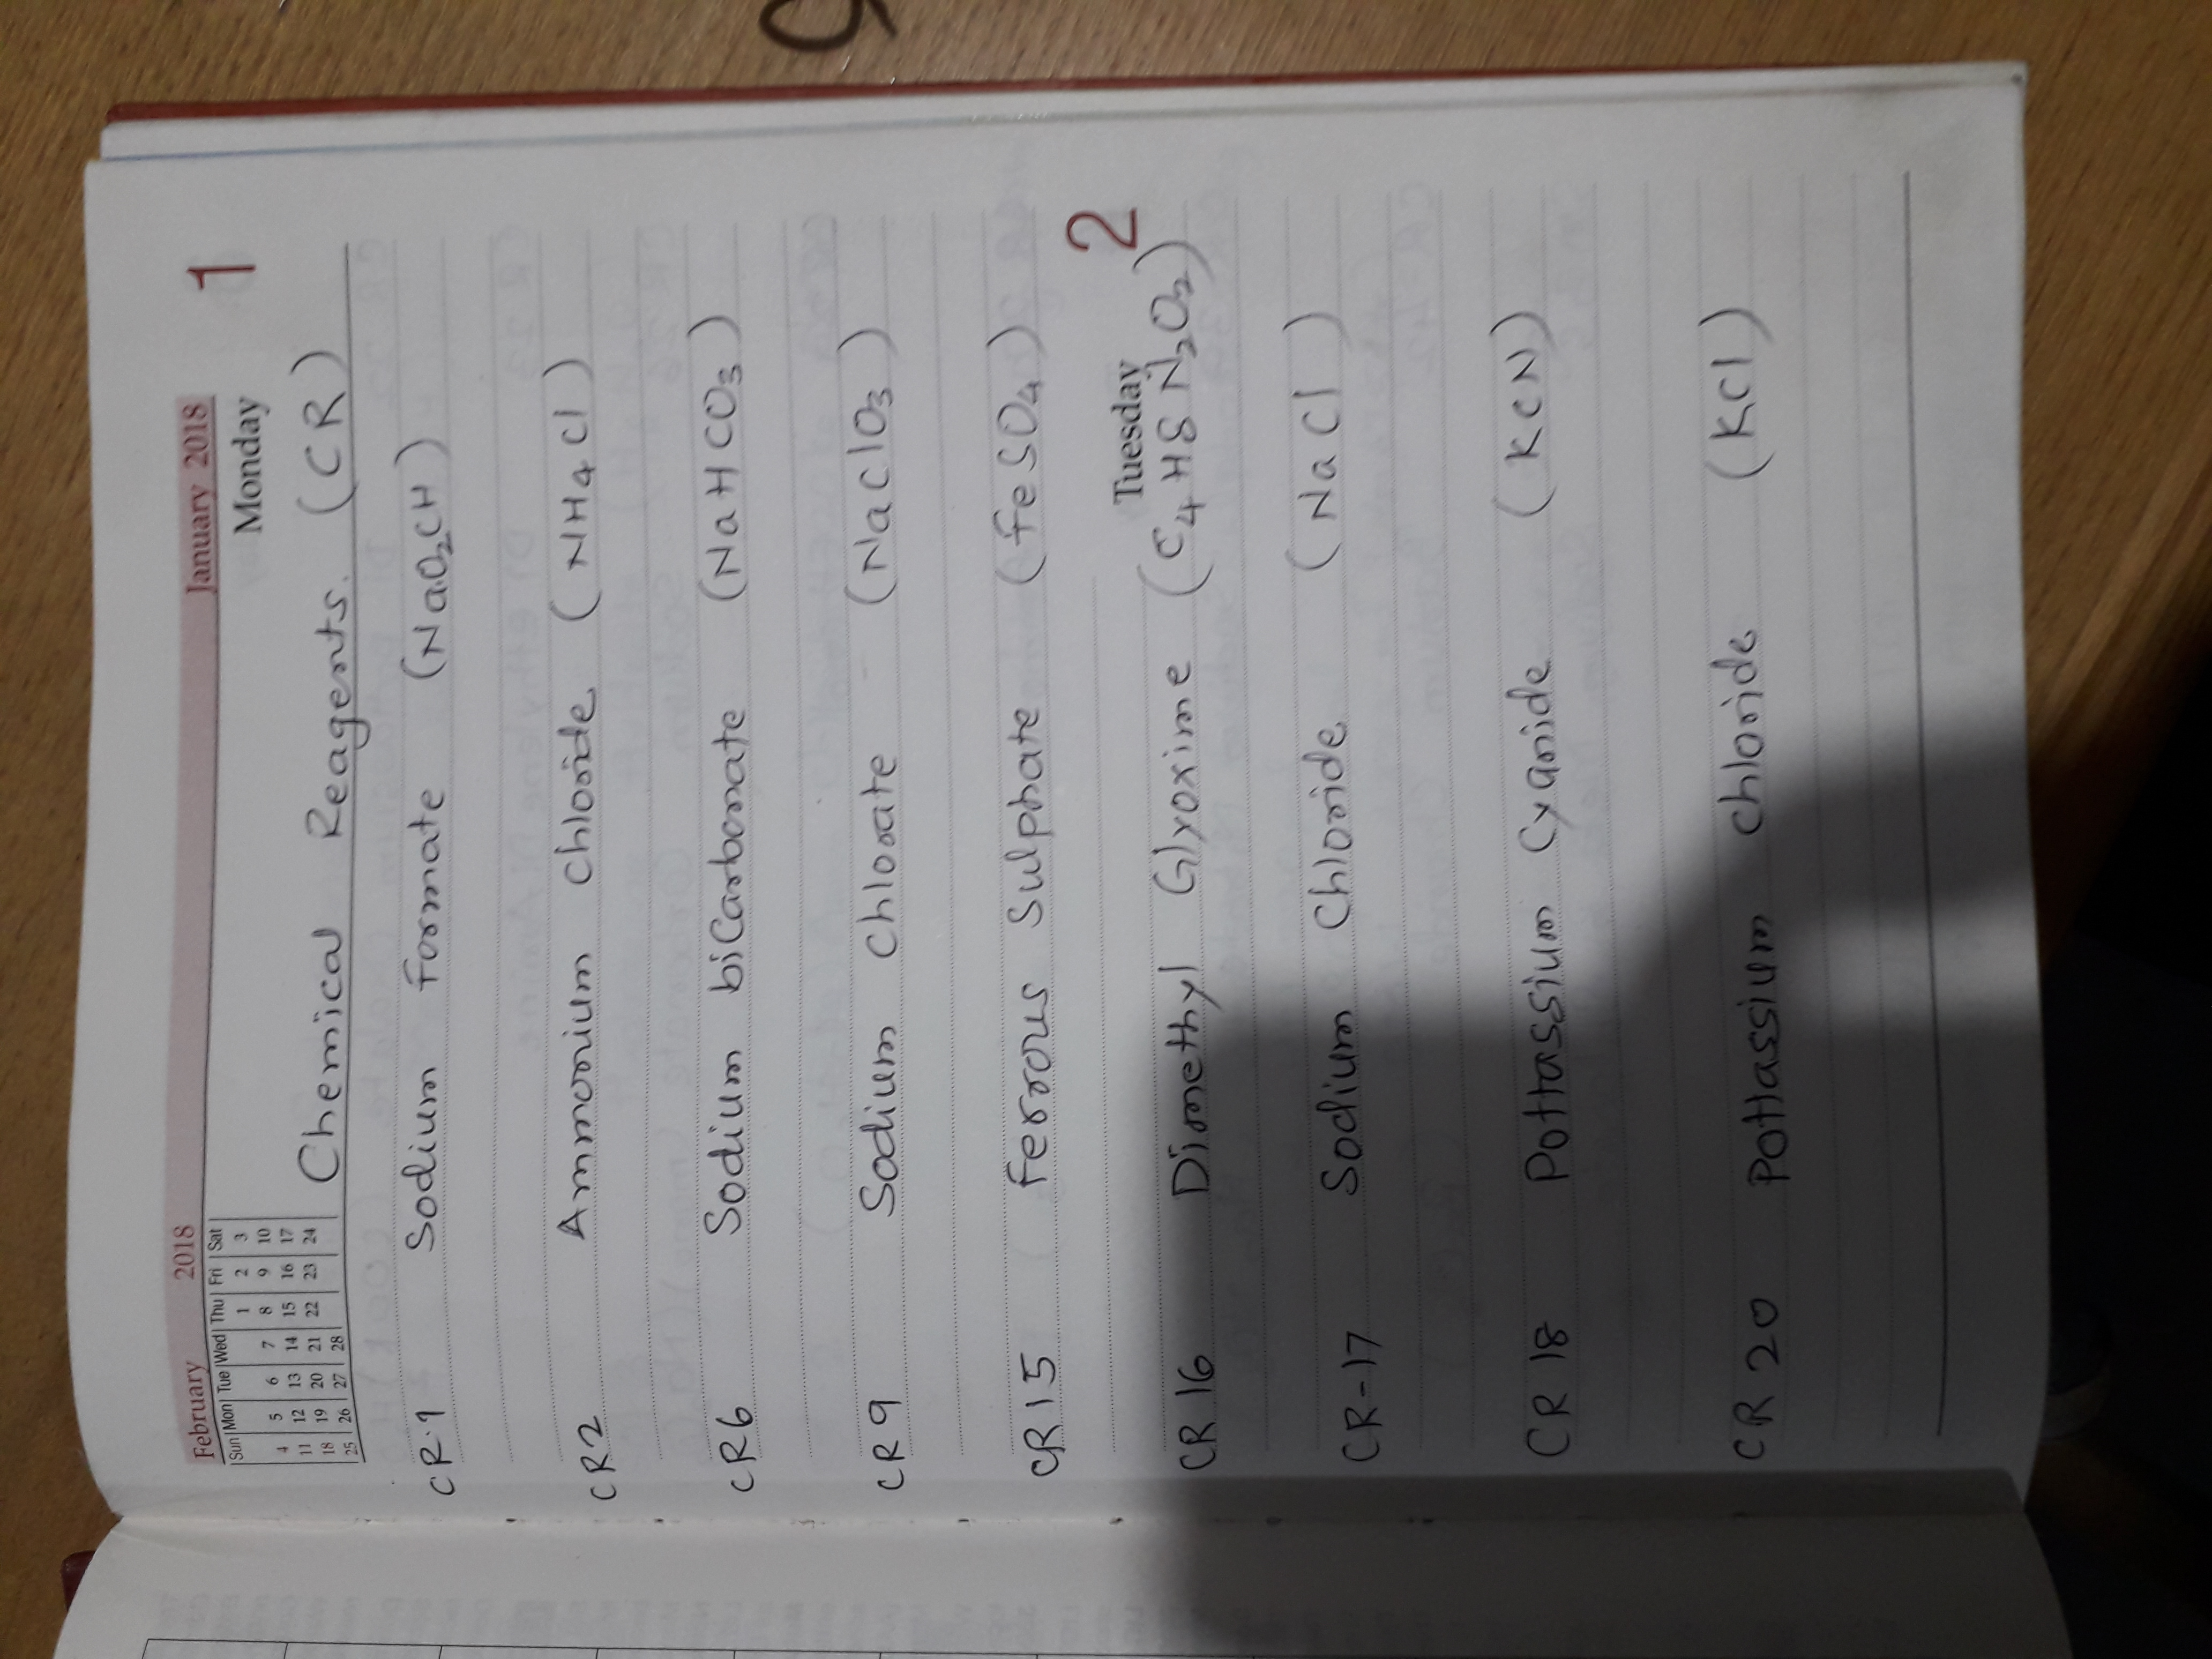 February 2018
January 2018
1
Sun Mon Tue Wed Thu Fri Sat
Monday
1 2 3
4 5 6 7 8 9 10
11 12 13 14 15 16 17
18 19 20 21 22 23 24
25 26 27 28
Chemical Reagents. (CR)
CR.1 Sodium Formate (NaO2CH)
CR2 Ammonium Chloride (NH4Cl)
CR6 Sodium biCarbonate (NaHCO3)
CR9 Sodium Chlorate (NaClO3)
CR15 Ferrous Sulphate (FeSO4)
2
Tuesday
CR 16 Dimethyl Glyoxime (C4H8N2O2)
CR-17 Sodium Chloride (NaCl)
CR 18 Pottassium Cyanide (KCN)
CR 20 Pottassium Chloride (KCl)